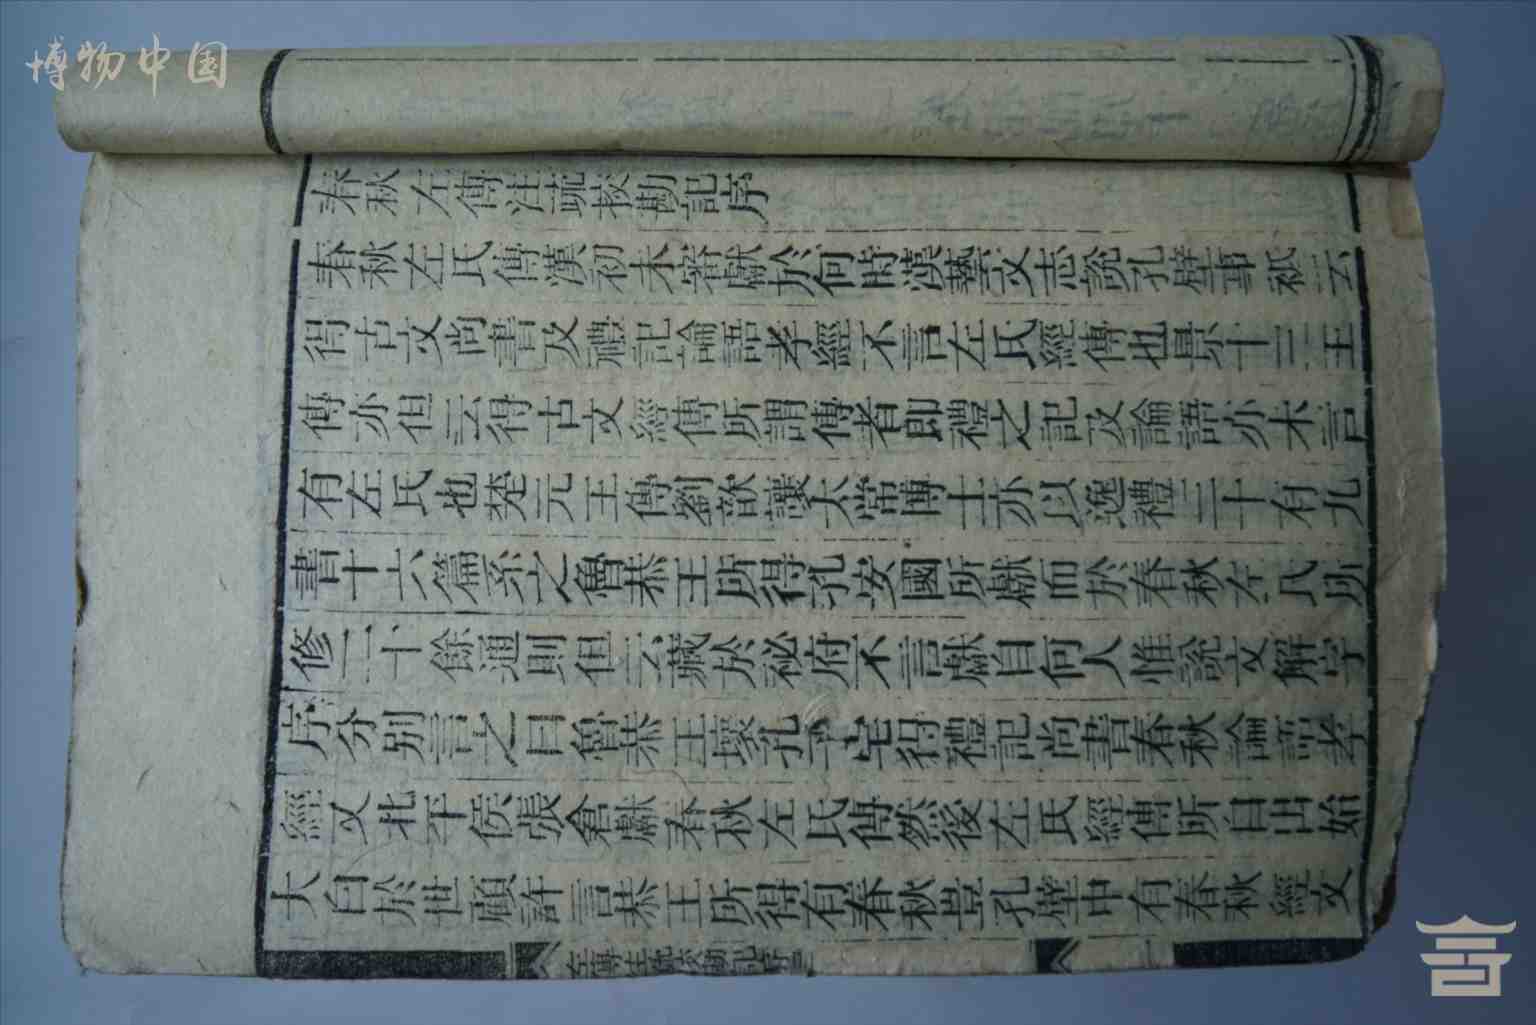 博物中国
春秋左傳注疏挍勘記序
春秋左氏傳漢初未審獻於何時漢藝文志說孔壁事祇云
得古文尚書及禮記論語孝經不言左氏經傳也景十三王
傳亦但云得古文經傳所謂傳者即禮之記及論語亦未言
有左氏也楚元王傳劉歆讓太常博士亦以逸禮三十有九
書十六篇系之魯恭王所得孔安國所獻而於春秋左氏所
修二十餘通則但云藏於祕府不言獻自何人惟說文解字
序分別言之曰魯恭王壞孔子宅得禮記尚書春秋論語孝
經又北平侯張倉獻春秋左氏傳然後左氏經傳所自出始
大白於世顧許言恭王所得有春秋豈孔壁中有春秋經文
左傳注疏挍勘記序